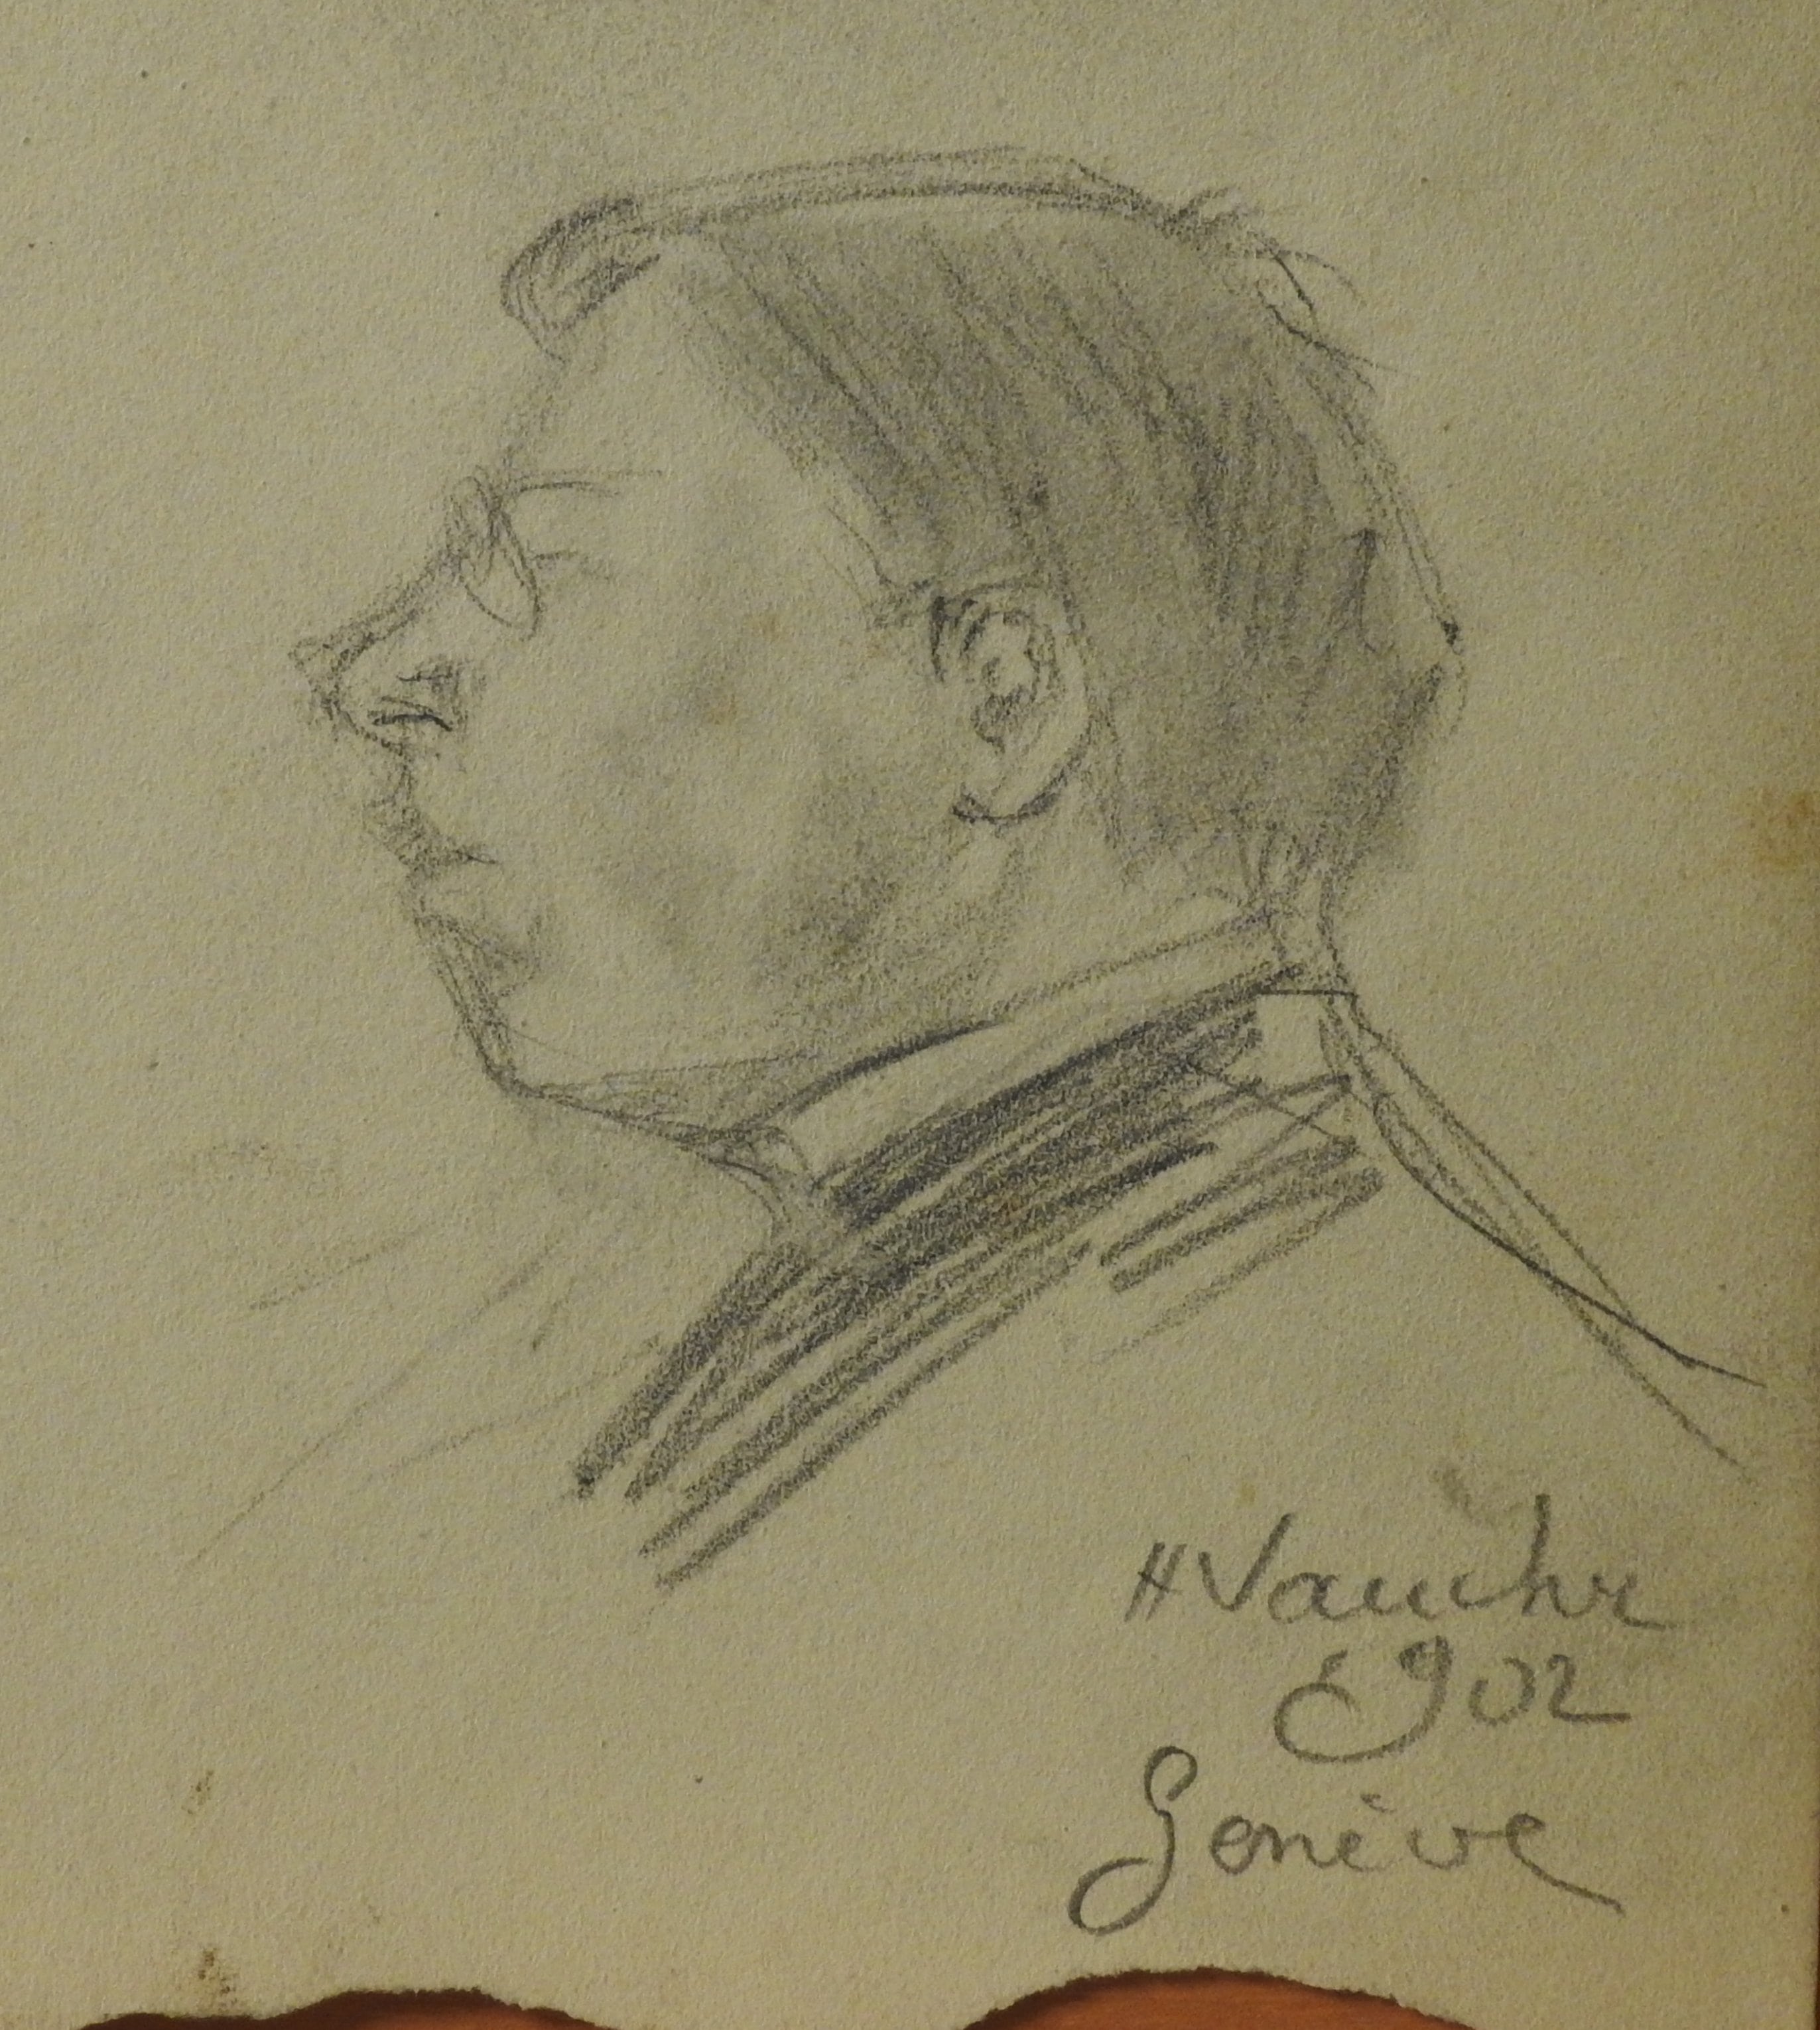 H Vaucher
1902
Genève